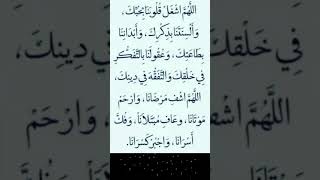 اللَّهُمَّ اشْغَلْ قُلُوبَنَا بِحُبِّكَ ،
وَأَلْسِنَتَنَا بِذِكْرِكَ ، وَأَبْدَانَنَا
بِطَاعَتِكَ ، وَعُقُولَنَا بِالتَّفَكُّرِ
فِي خَلْقِكَ وَالتَّفَقُّهِ فِي دِينِكَ ،
اللَّهُمَّ اشْفِ مَرْضَانَا ، وَارْحَمْ
مَوْتَانَا ، وَعَافِ مُبْتَلَانَا ، وَفُكَّ
أَسْرَانَا ، وَاجْبُرْ كَسْرَانَا.